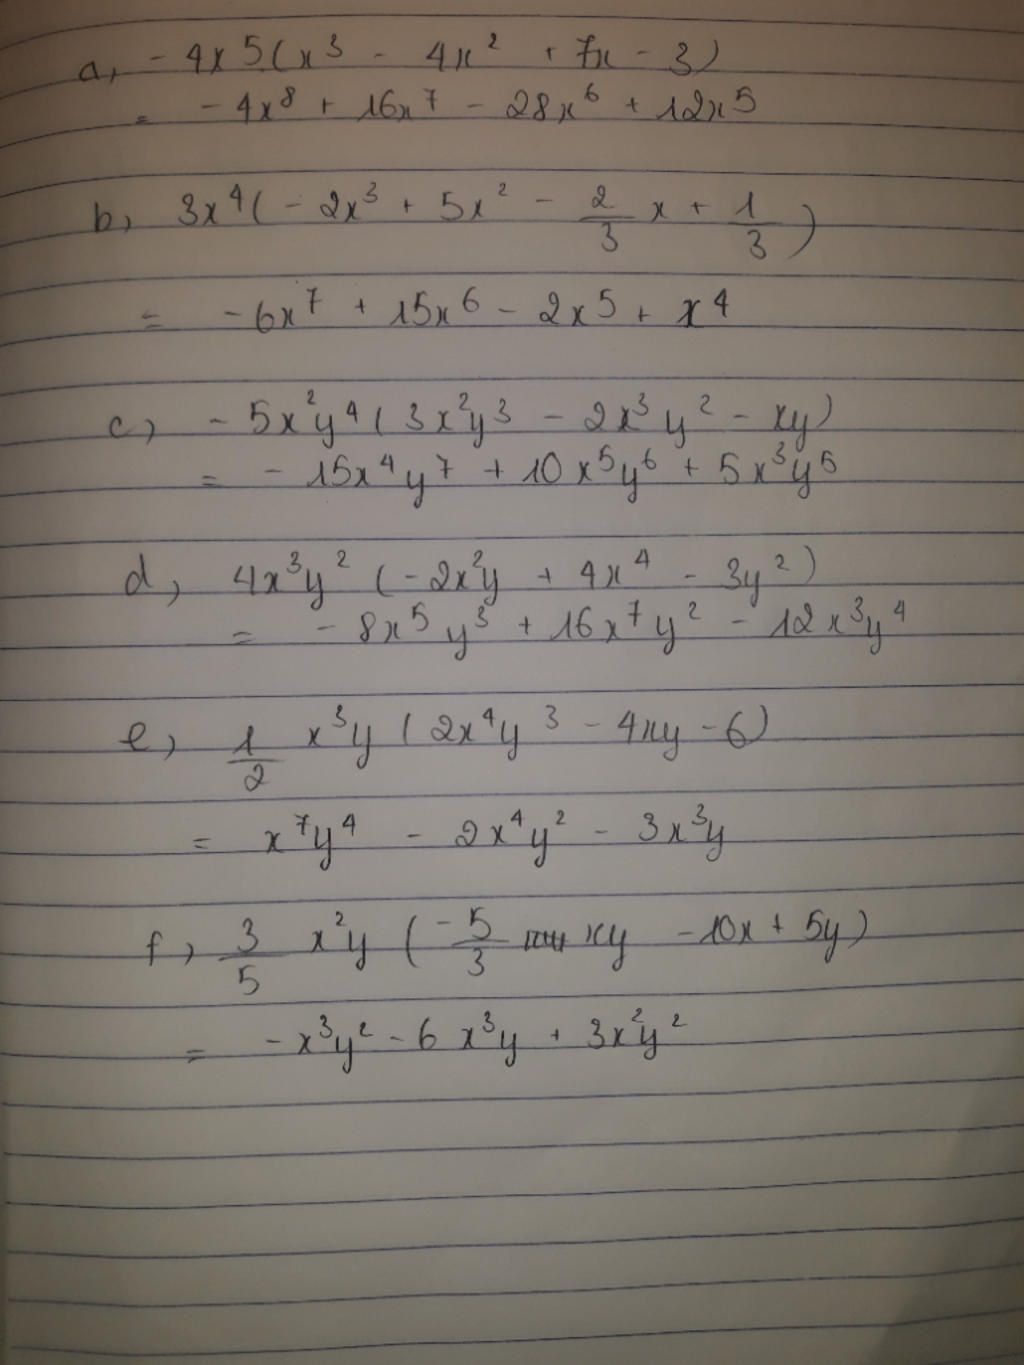 a, - 4x5(x³ - 4x² + 7x - 3)
= - 4x⁸ + 16x⁷ - 28x⁶ + 12x⁵
b, 3x⁴(- 2x³ + 5x² - 2/3 x + 1/3)
= - 6x⁷ + 15x⁶ - 2x⁵ + x⁴
c, - 5x²y⁴(3x²y³ - 2x³y² - xy)
= - 15x⁴y⁷ + 10x⁵y⁶ + 5x³y⁵
d, 4x³y² (- 2x²y + 4x⁴ - 3y²)
= - 8x⁵y³ + 16x⁷y² - 12x³y⁴
e, 1/2 x³y (2x⁴y³ - 4xy - 6)
= x⁷y⁴ - 2x⁴y² - 3x³y
f, 3/5 x²y (- 5/3 xy - 10x + 5y)
= - x³y² - 6x³y + 3x²y²